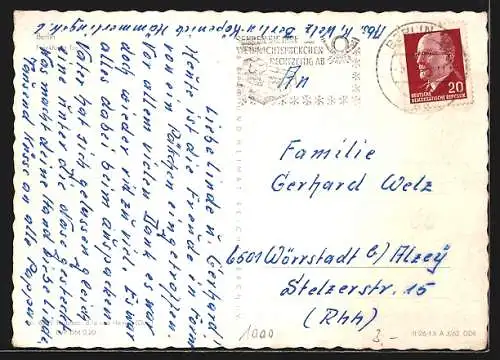 Abs. K. Welz Berlin-Köpenick Hämmerlingstr.
BERLIN
SENDEN SIE IHRE
WEIHNACHTSPÄCKCHEN
RECHTZEITIG AB
20
DEUTSCHE
DEMOKRATISCHE REPUBLIK
An
Familie
Gerhard Welz
6501 Wörrstadt b/ Alzey
Stelzerstr. 15
(Rhh)
Berlin
Liebe Linde u. Gerhard!
Heute ist die Freude in Form
von ein Päkchen eingetroffen.
Vor allem vielen Dank es war
doch wieder viel zu viel. Er war
alles dabei beim auspacken
Vater hat sich gelassen gleich
eine unter die Nase gesteckt
Was macht deine Hand Liebe Linde.
Tausend Küsse an alle Pappa.
1000
2,-